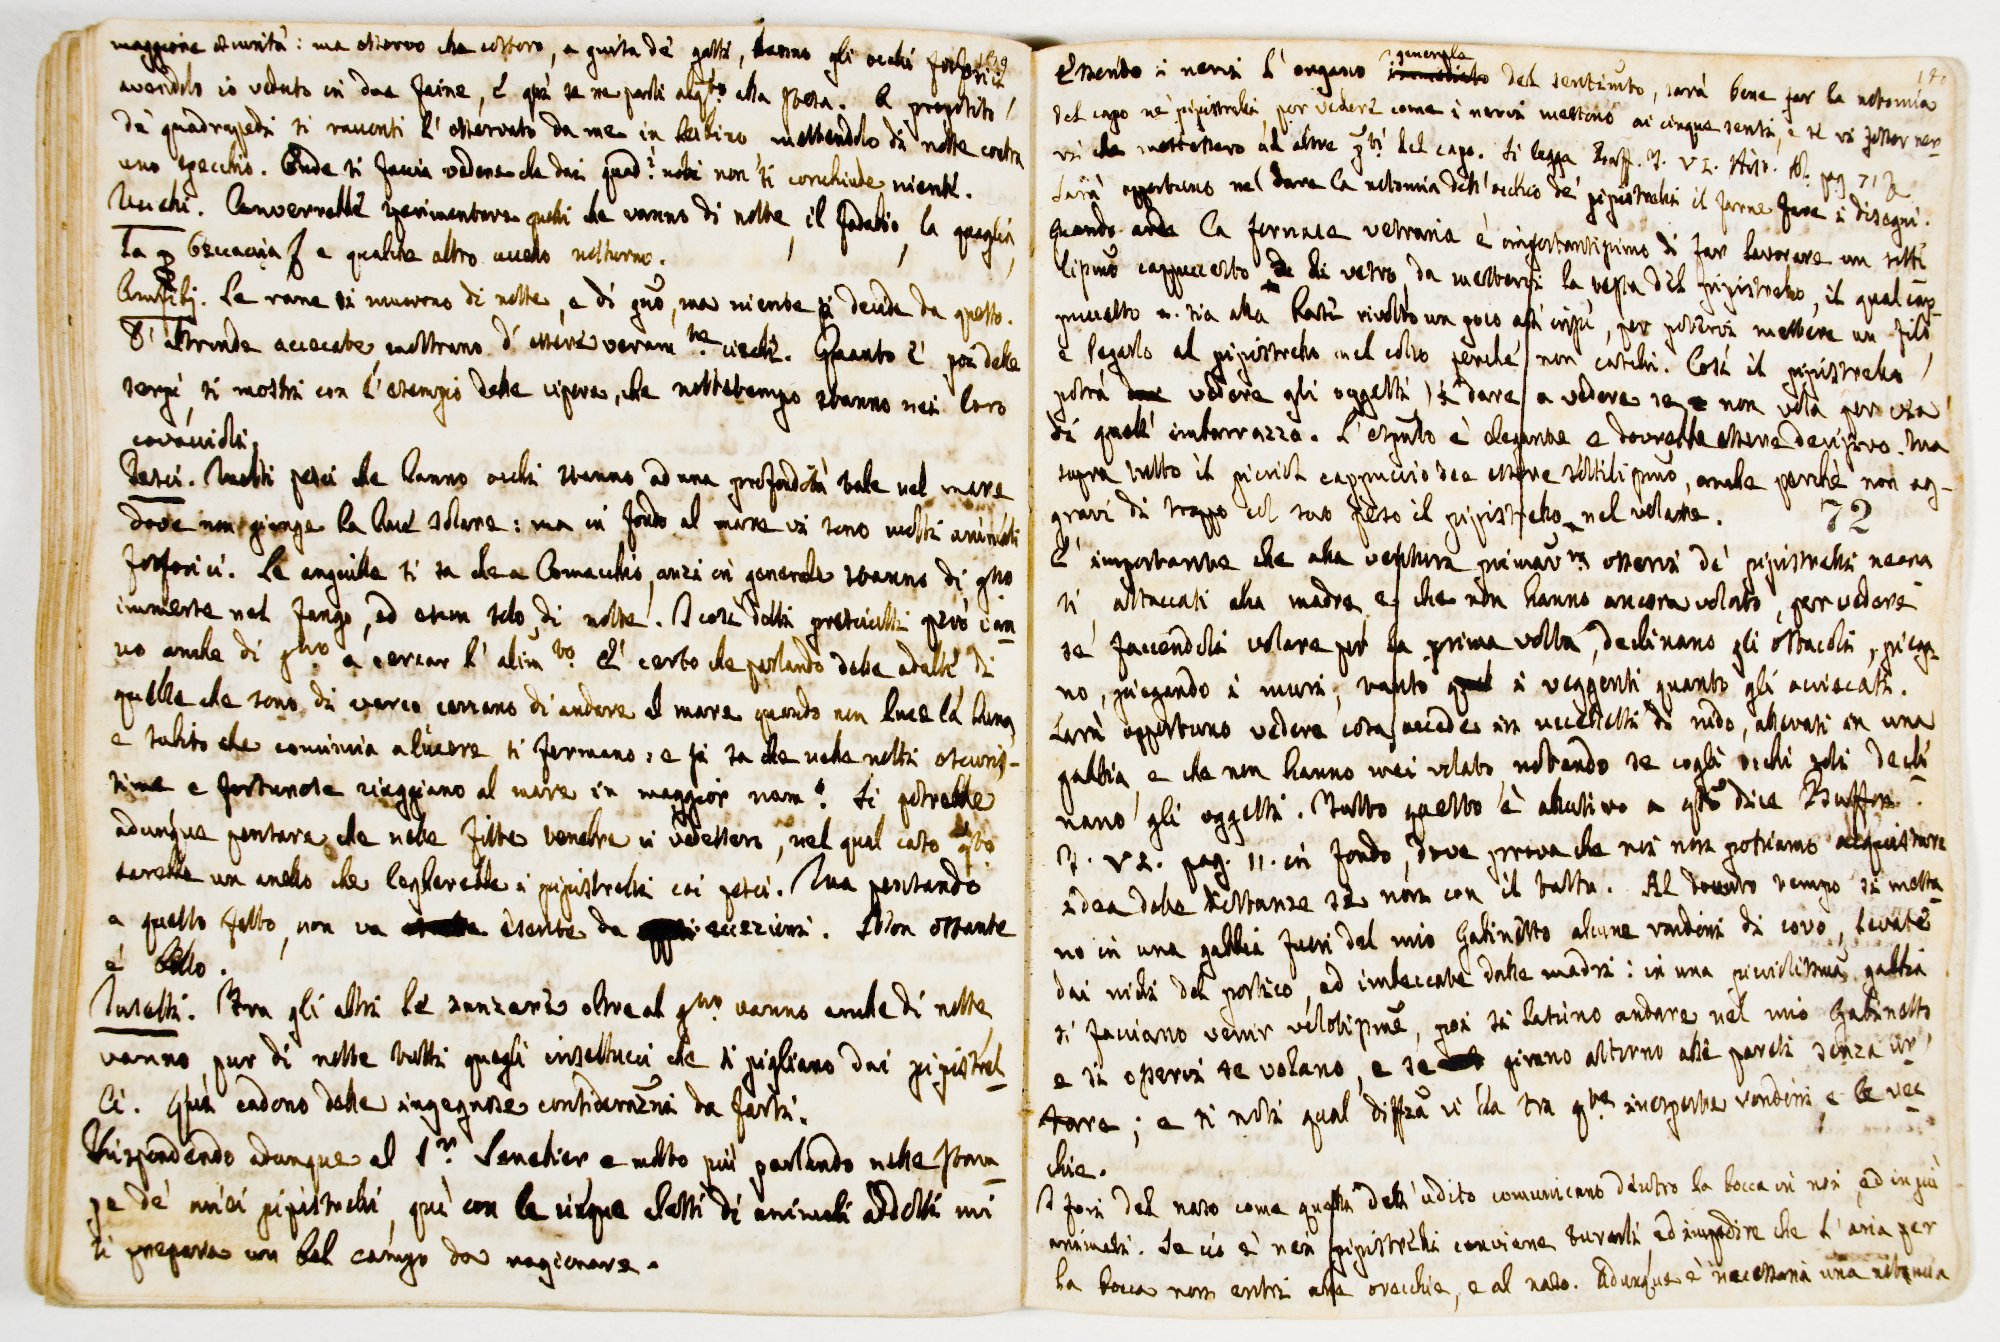 maggiore oscurità: ma osservo che costoro, a guisa de' gatti, hanno gli occhi fosforici
avendolo io veduto in due faine, e qui se ne parli alla stesa. A proposito
de' quadrupedi si racconti l'osservato da me in mettendolo di notte contra
uno specchio. Onde si faccia vedere che dai quad.i nobi non si conchiude niente.
Uccelli. Converrebbe sperimentare quelli che vanno di notte, il la quaglia,
la beccaccia e qualche altro uccello notturno.
Amfibj. Le rane si muovono di notte, e di gno, ma niente si decide da questo.
D'altronde accecate mostrano d'essere veram.te cieche. Quanto è poi delle
serpi, si mostri con l'esempio delle vipere, che nottetempo stanno nei loro
covaccioli.
Pesci. Molti pesci che hanno occhi stanno ad una profondità tale nel mare
dove non giunge la luce solare: ma in fondo al mare vi sono molti animali
fosforici. Le anguille si sa che a Comacchio, anzi in generale stanno di gno
immerse nel fango, ed escon solo di notte. I così detti pesciatelli però
no anche di gno a cercar l'alim.to. E' certo che parlando delle anguille di
quelle che sono di cercano di andare al mare quando non luce la luna,
e subito che comincia a lucere si fermano: e si sa che nelle notti oscuris-
sime e fortunose viaggiano al mare in maggior num.o. Si potrebbe
adunque pensare che nelle fitte tenebre ci vedessero, nel qual caso qsto
sarebbe un anello che legherebbe i pipistrelli coi pesci. Ma pensando
a questo fatto, non va esente da eccezioni. Non ostante
è bello.
Insetti. Fra gli altri le zanzare oltre al gno vanno anche di notte,
vanno pur di notte tutti quegli insettucci che si pigliano dai pipistrel-
li. Qui cadono delle ingegnose considerazni da farsi.
Rispondendo adunque al S.r Senebier, e molto più parlando nelle stam-
pe de' miei pipistrelli, qui con le cinque classi di animali addotti mi
si prepara un bel campo da ragionare.
Essendo i nervi l'organo generale immediato del sentimto, sarà bene far la notomia
del capo ne' pipistrelli, per vedere come i nervi mettono ai cinque sensi, e se vi fosser ner-
vi che mettessero ad altre pti del capo. Si legga Buff. T. VI. Hist. N. pag. 71
Sarà opportuno nel dare la notomia dell'occhio de' pipistrelli il farne fare i disegni.
Quando arde la fornace vetraria è importantissimo di far lavorare un sotti-
lissmo cappuccetto di vetro, da mettersi la testa del pipistrello, il qual cap-
puccetto sia alla base rivolto un poco all'insù, per potervi mettere un filo
e legarlo al pipistrello nel collo perché non caschi. Così il pipistrello
potrà vedere gli oggetti, e dare a vedere se non vola per via
di quell'imbarazzo. L'espmto è elegante e dovrebbe essere decisivo. Ma
sopra tutto il picciol cappuccio dee essere sottilissmo, anche perché non ag-
gravi di troppo col suo peso il pipistrello nel volare.
72
E' importante che alla ventura primav.ra osservi de' pipistrelli neona-
ti, attaccati alla madre, e che non hanno ancora volato, per vedere
se facendoli volare per la prima volta, declinano gli ostacoli, piega-
no, piegando i muri, tanto i veggenti quanto gli acciecati.
Sarà opportuno vedere cosa accade in uccelletti di nido, allevati in una
gabbia, e che non hanno mai volato, notando se cogli occhi soli decli-
nano gli oggetti. Tutto questo è allusivo a qto dice Buffon
T. VI. pag. 11. in fondo, dove prova che noi non potriamo acquistare
idea delle distanze se non con il tatto. Al dovuto tempo si metta-
no in una gabbia fuori del mio Gabinetto alcune rondini di covo, levate
dai nidi del portico, ed imbeccate dalle madri: in una picciolissima gabbia
si facciano venir velocissme, poi si lascino andare nel mio Gabinetto
e si osservi se volano, e se girano attorno alle pareti senza ur-
tare; e si noti qual diffza vi sia tra qste inesperte rondini, e le vec-
chie.
I fori del naso come quelli dell'udito comunicano dentro la bocca in noi, ed in più
animali. Se ciò è nei pipistrelli conviene turarli, ed impedire che l'aria per
la bocca non entri alle orecchie, e al naso. Adunque è necessaria una notomia